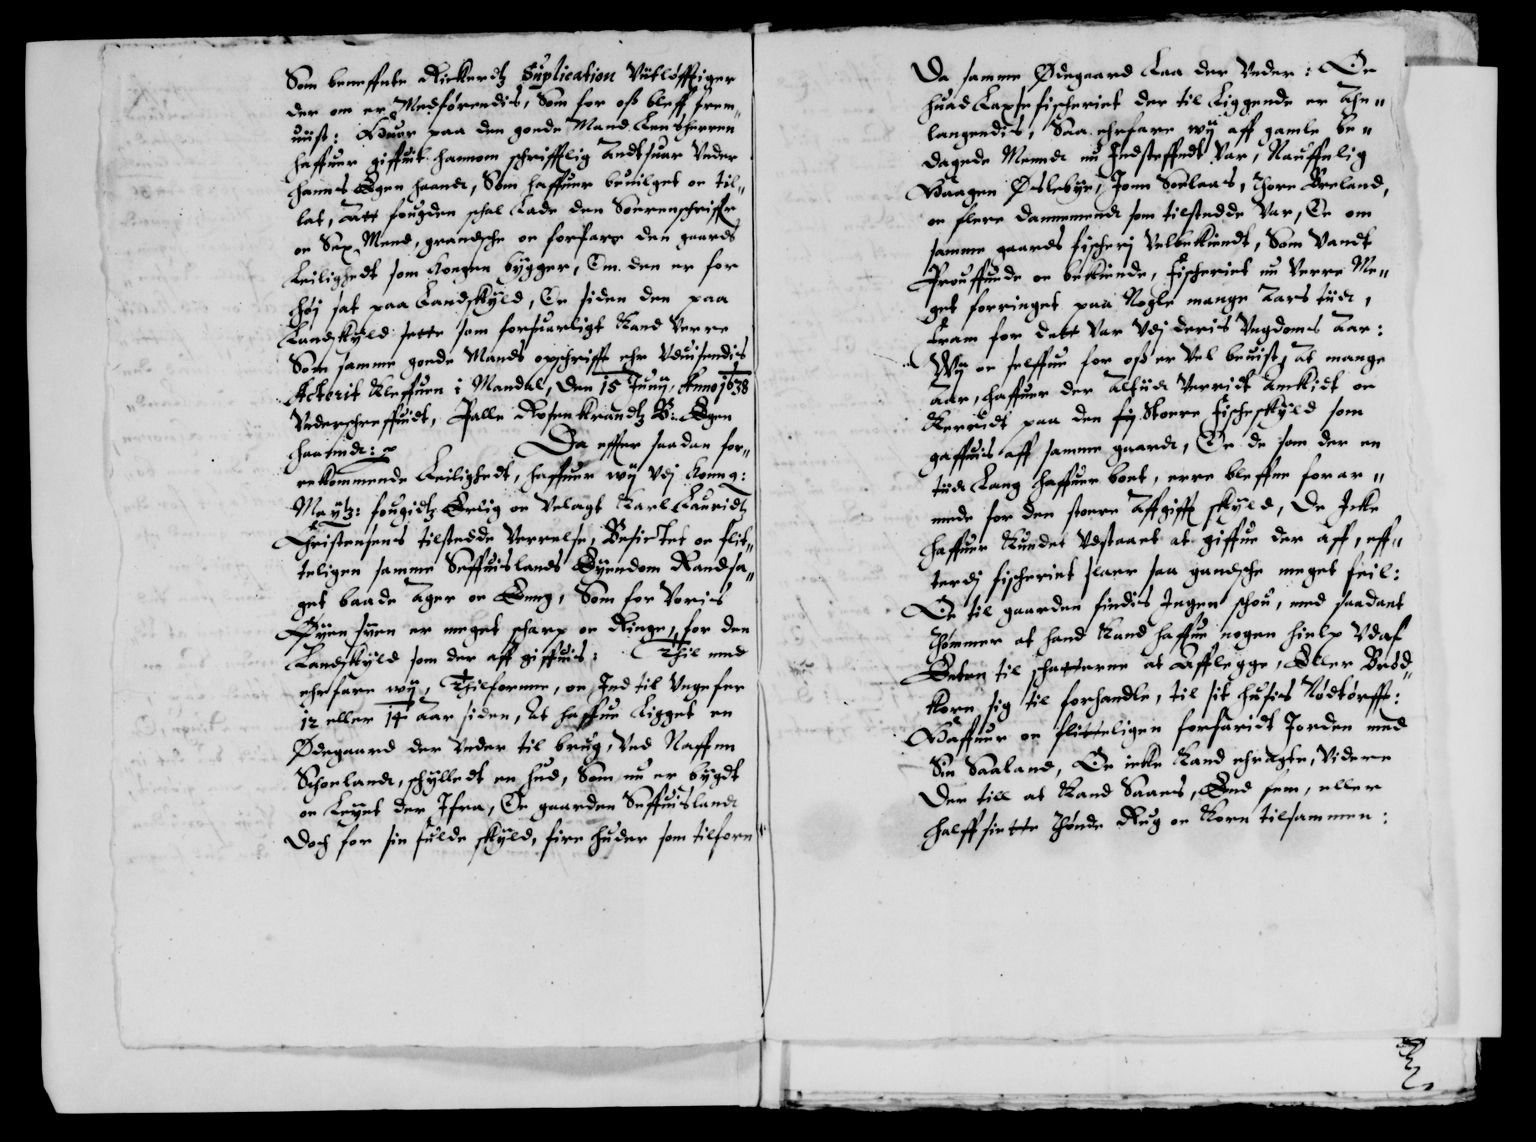 Som beneffnte Rickerdtz Suplication Vitløfftiger
der om er Medførendis, Som for oß bleff frem¬
uiist: Huor paa den goede Mand Lensherren
haffuer giffuit hannom schrifftlig Andtsuar Under
hanns Egen haand, Som haffuer beuilget oc til¬
lat, Att fougden schal Lade den Soerenschriffr
oc Sex Mend, grandsche oc forfare den gaards
Leilighedt som Kongen bygger, Om den er for
høj sat paa Landskyld, Oc siden den paa
Landskyld sette som forsuarligt Kand Verre
Som samme goede Mands opschrifft ehr Uduisendis
Ackterit Kleffuen i Mandal, Den 15 Junij, Anno 1638
Underschreffuidt, Palle Rosenkrandtz E: Egen
haandt:
Da effter saadan for¬
rekommende Leilighedt, haffuer wij Vdj Konng:
Maytz: fougidtz Erlig oc Velagt Karl Lauridtz
Christensens tilstedde Verrelse, Besictet oc flit¬
teligen samme Seffuislands Eyendom Randsa¬
get baade Ager oc Enng, Som for Voris
Øyen siven er meget scharp oc Ringe, for den
Landskyld som der aff giffuis: Thil med
ehrfare wij, Thilforne, oc Ind til Ungefer
12 eller 14 Aar siden, At haffue Ligget en
Ødegaard der Under til brug, Ved Naffnn
Schoeland, schylledt en hud, Som nu er bygdt
oc Leyet der Ifra, Oc gaarden Seffuisland
Doch for sin fulde skyld, fire huder som tilforn
Da samme Ødegaard Laa der Under: Oc
huad Laxsefischeriet der til Liggende er Ahn¬
langendis, Saa ehrfare wij aff gamle be¬
dagede Mennd nu Indsteffndt Var, Nauffnlig
Haagen Øslebye, Jonn Soelaas, Thore Breland,
oc flere dannemend som tilstedde Var, Oc om
samme gaards fischerj Velbekiendt, Som Vandt
Prouffuede oc bekiende, fischeriet nu Verre Me¬
get forringet paa Nogle mange Aars tiid,
fram for dett Var Udj deris Ungdoms Aar:
Wij oc selffue for oß er Vel beuist, At mange
Aar, haffuer der Altiid Verridt Anckidt oc
Kerridt paa den sty Stoere fischeskyld som
gaffuis aff samme gaard, Oc de som der en
tiid Lang haffuer boet, erre bleffne forar¬
mede for den stoere Affgifft skyld, De Icke
haffuer Kundet Udstaaet at giffue der aff, eff¬
terdj fischeriet slaer saa gandsche meget feil:
Oc til gaarden findis Ingen schou, med saadant
Thømmer at hand Kand haffue nogen hielp Udaf
Enten til schatterne at Afflegge, Eller Brød¬
Korn sig til forhandle, til sit husis Nødtørfft:
Haffuer oc flitteligen forfaridt Jorden med
Sin Saaland, Oc icke Kand ehragte, Videre
Der till at Kand Saaes, End fem, eller
halff siette Thønde Rug oc Korn tilsammen: